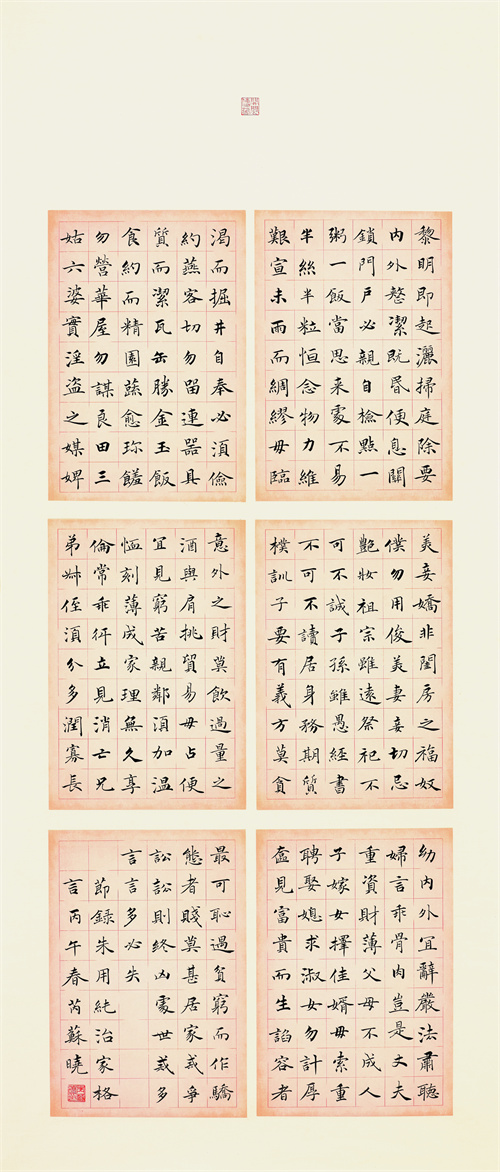 黎明即起灑掃庭除要
内外整潔既昏便息關
鎖門戶必親自檢點一
粥一飯當思来處不易
半絲半粒恒念物力維
艱宜未雨而綢繆毋臨
渴而掘井自奉必湏儉
約燕客切勿留連器具
質而潔瓦缶勝金玉飯
食約而精園蔬愈珎饈
勿營華屋勿謀良田三
姑六婆實淫盗之媒婢
美妾嬌非閨房之福奴
僕勿用俊美妻妾切忌
艷妝祖宗雖遠祭祀不
可不誠子孫雖愚經書
不可不讀居身務期質
樸訓子要有義方莫貪
意外之財莫飲過量之
酒與肩挑貿易毋占便
冝見窮苦親鄰湏加温
恤刻薄成家理無久享
倫常乖舛立見消亡兄
弟叔侄湏分多潤寡長
幼内外冝辭嚴法肅聽
婦言乖骨肉豈是丈夫
重資財薄父母不成人
子嫁女擇佳婿毋索重
聘娶媳求淑女勿計厚
奩見富貴而生諂容者
最可恥遇貧窮而作驕
態者賤莫甚居家戒爭
訟訟則終凶處世戒多
言言多必失
節録朱用純治家格
言丙午春芮蘇曉